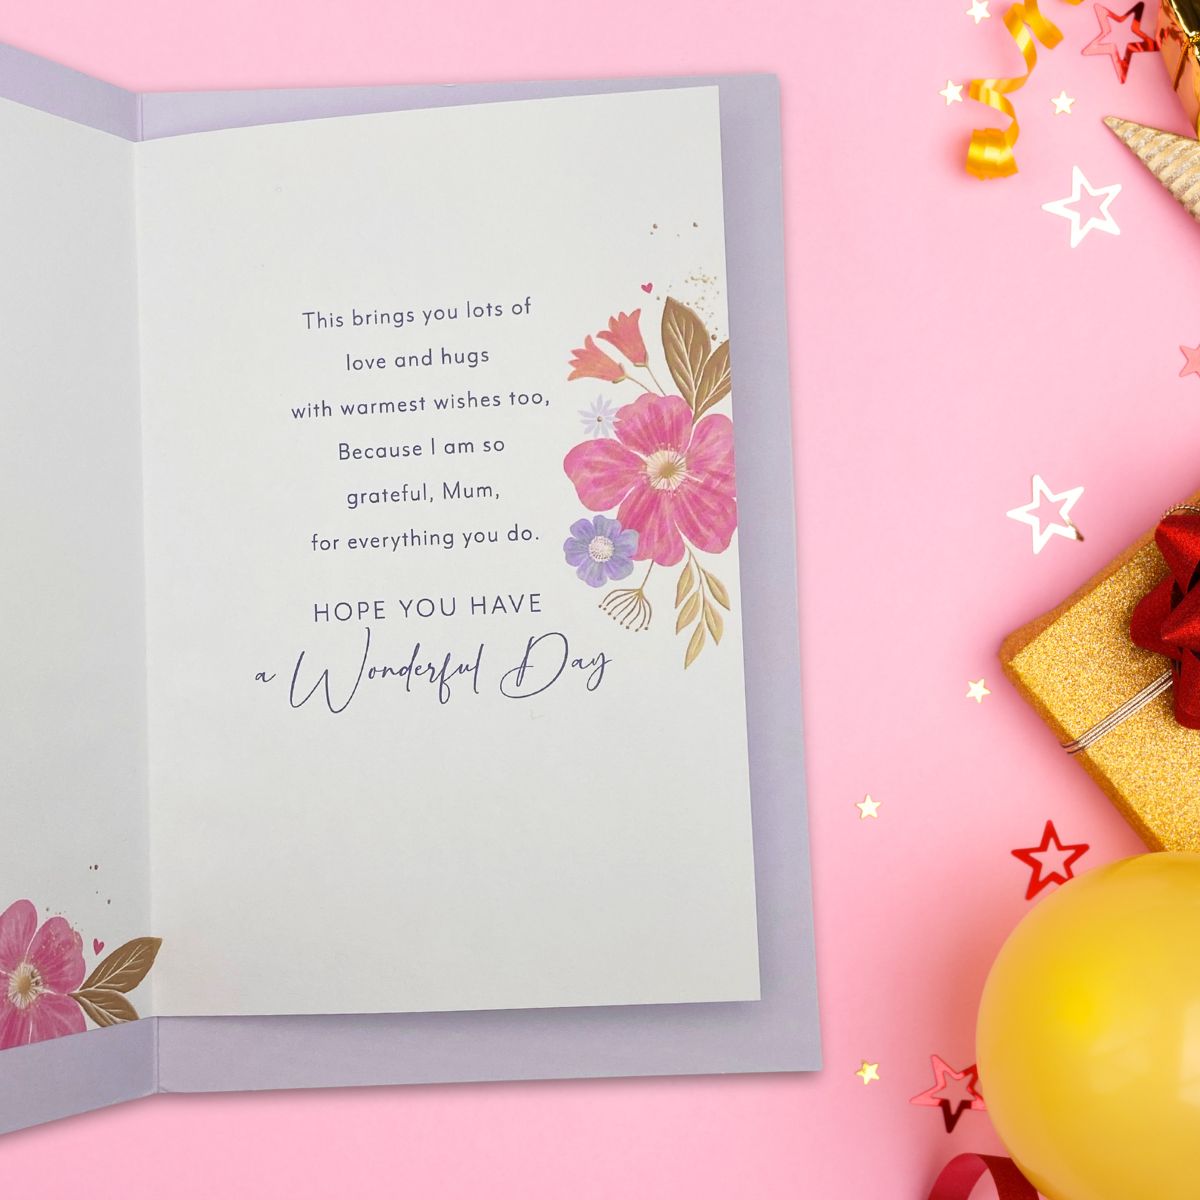 This brings you lots of
love and hugs
with warmest wishes too,
Because I am so
grateful, Mum,
for everything you do.
HOPE YOU HAVE
a Wonderful Day